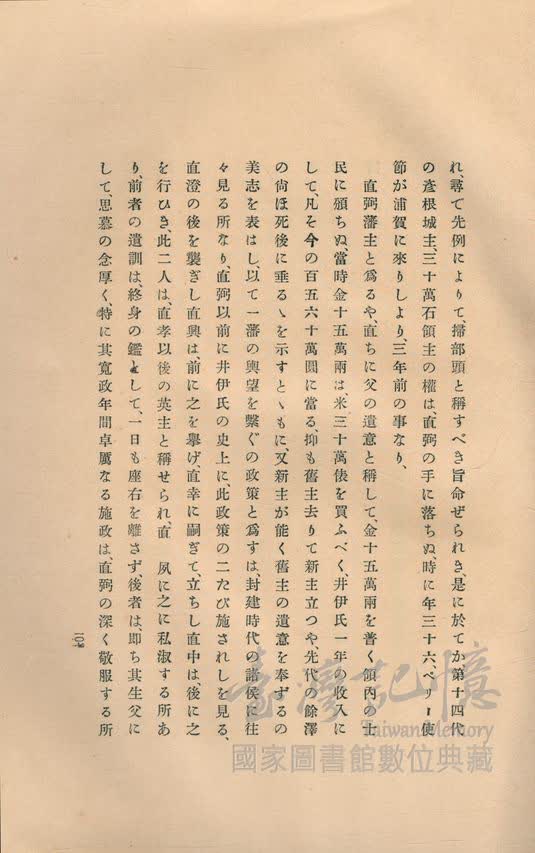 れ、尋で先例によりて、掃部頭と稱すべき旨命ぜられき、是に於てか、第十四代
の彦根城主、三十萬石領主の權は、直弼の手に落ちぬ、時に年三十六、ペリー使
節が浦賀に來りしより、三年前の事なり、
直弼藩主と爲るや、直ちに父の遺意と稱して、金十五萬兩を普く領內の士
民に頒ちぬ、當時金十五萬兩は、米三十萬俵を買ふべく、井伊氏一年の收入に
して、凡そ今の百五六十萬圓に當る、抑も舊主去りて新主立つや、先代の餘澤
の尙ほ死後に垂るゝを示すとゝもに、又新主が能く舊主の遺意を奉ずるの
美志を表はし、以て一藩の輿望を繫ぐの政策と爲すは、封建時代の諸侯に往
々見る所なり、直弼以前に井伊氏の史上に、此政策の二たび施されしを見る、
直澄の後を襲ぎし直興は、前に之を擧げ、直幸に嗣ぎて、立ちし直中は、後に之
を行ひき、此二人は、直孝以後の英主と稱せられ、直 夙に之に私淑する所あ
り、前者の遺訓は、終身の鑑として、一日も座右を離さず、後者は、卽ち其生父に
して、思慕の念厚く、特に其寬政年間卓厲なる施政は、直弼の深く敬服する所
臺灣記憶
Taiwan Memory
國家圖書館數位典藏